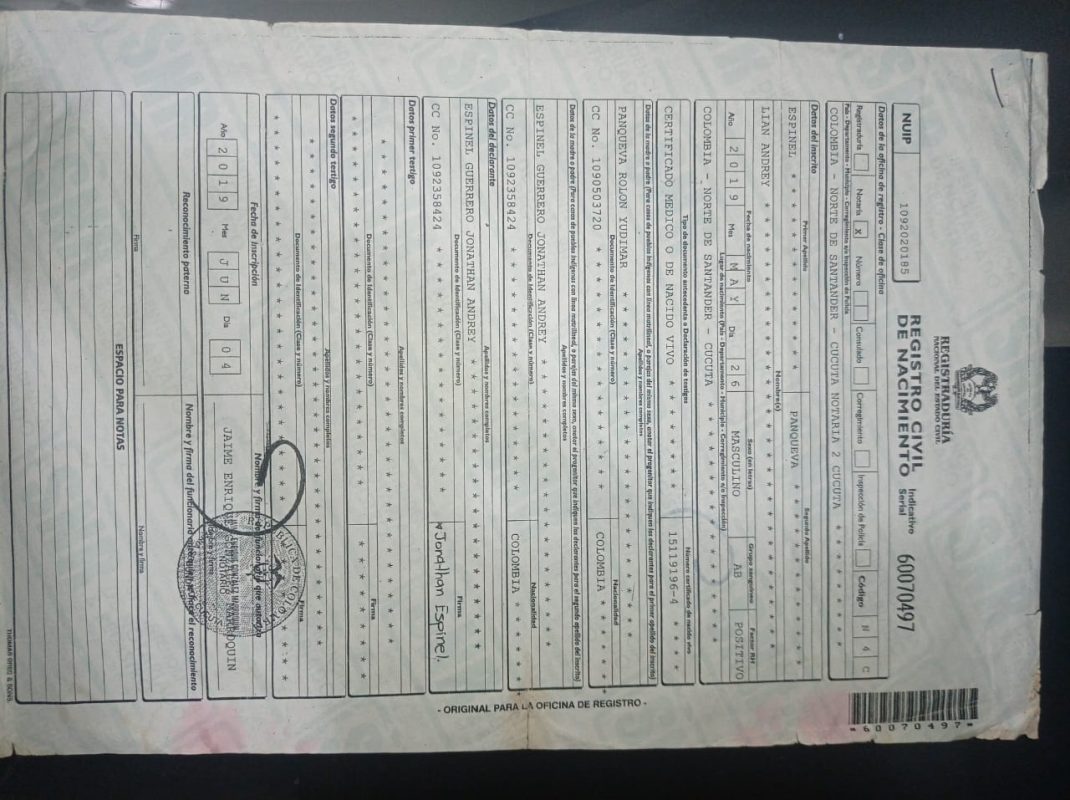 REGISTRADURÍA
NACIONAL DEL ESTADO CIVIL
REGISTRO CIVIL
DE NACIMIENTO
Indicativo
Serial 60070497
*60070497*
NUIP 1092020185
Datos de la oficina de registro - Clase de oficina
Registraduría Notaría X Número Consulado Corregimiento Inspección de Policía Código N 4 C
País - Departamento - Municipio - Corregimiento e/o Inspección de Policía
COLOMBIA - NORTE DE SANTANDER - CUCUTA NOTARIA 2 CUCUTA * * * * *
Datos del inscrito
Primer Apellido Segundo Apellido
ESPINEL * * * * * * * * * * PANQUEVA * * * * * * * * *
Nombre(s)
LIAN ANDREY * * * * * * * * * * * * * * * * * * *
Fecha de nacimiento Sexo (en letras) Grupo sanguíneo Factor RH
Año 2019 Mes MAY Día 26 MASCULINO AB POSITIVO
Lugar de nacimiento (País - Departamento - Municipio - Corregimiento e/o Inspección)
COLOMBIA - NORTE DE SANTANDER - CUCUTA * * * * * * * * * *
Tipo de documento antecedente o Declaración de testigos Número certificado de nacido vivo
CERTIFICADO MEDICO O DE NACIDO VIVO * * * * * * 15119196-4 * * * *
Datos de la madre o padre (Para casos de pueblos indígenas con línea matrilineal, o parejas del mismo sexo, anotar el progenitor que indiquen los declarantes para el primer apellido del inscrito)
Apellidos y nombres completos
PANQUEVA ROLON YUDIMAR * * * * * * * * * * * * * * *
Documento de Identificación (Clase y número) Nacionalidad
CC No. 1090503720 * * * * * * * * * * COLOMBIA * * * * * *
Datos de la madre o padre (Para casos de pueblos indígenas con línea matrilineal, o parejas del mismo sexo, anotar el progenitor que indiquen los declarantes para el segundo apellido del inscrito)
Apellidos y nombres completos
ESPINEL GUERRERO JONATHAN ANDREY * * * * * * * * * * * * *
Documento de Identificación (Clase y número) Nacionalidad
CC No. 1092358424 * * * * * * * * * COLOMBIA * * * * * *
Datos del declarante
Apellidos y nombres completos
ESPINEL GUERRERO JONATHAN ANDREY * * * * * * * * * * * * *
Documento de Identificación (Clase y número) Firma
CC No. 1092358424 * * * * * * * * * Jonathan Espinel.
Datos primer testigo
Apellidos y nombres completos
* * * * * * * * * * * * * * * * * * * *
Documento de Identificación (Clase y número) Firma
* * * * * * * * * * * * * * *
Datos segundo testigo
Apellidos y nombres completos
* * * * * * * * * * * * * * * * * * * *
Documento de Identificación (Clase y número) Firma
* * * * * * * * * * * * * * *
Fecha de inscripción Nombre y firma del funcionario que autoriza
Año 2019 Mes JUN Día 04
JAIME ENRIQUE MARROQUIN
Reconocimiento paterno Nombre y firma del funcionario ante quien se hace el reconocimiento
Firma Nombre y firma
ESPACIO PARA NOTAS
- ORIGINAL PARA LA OFICINA DE REGISTRO -
THOMAS GREG & SONS